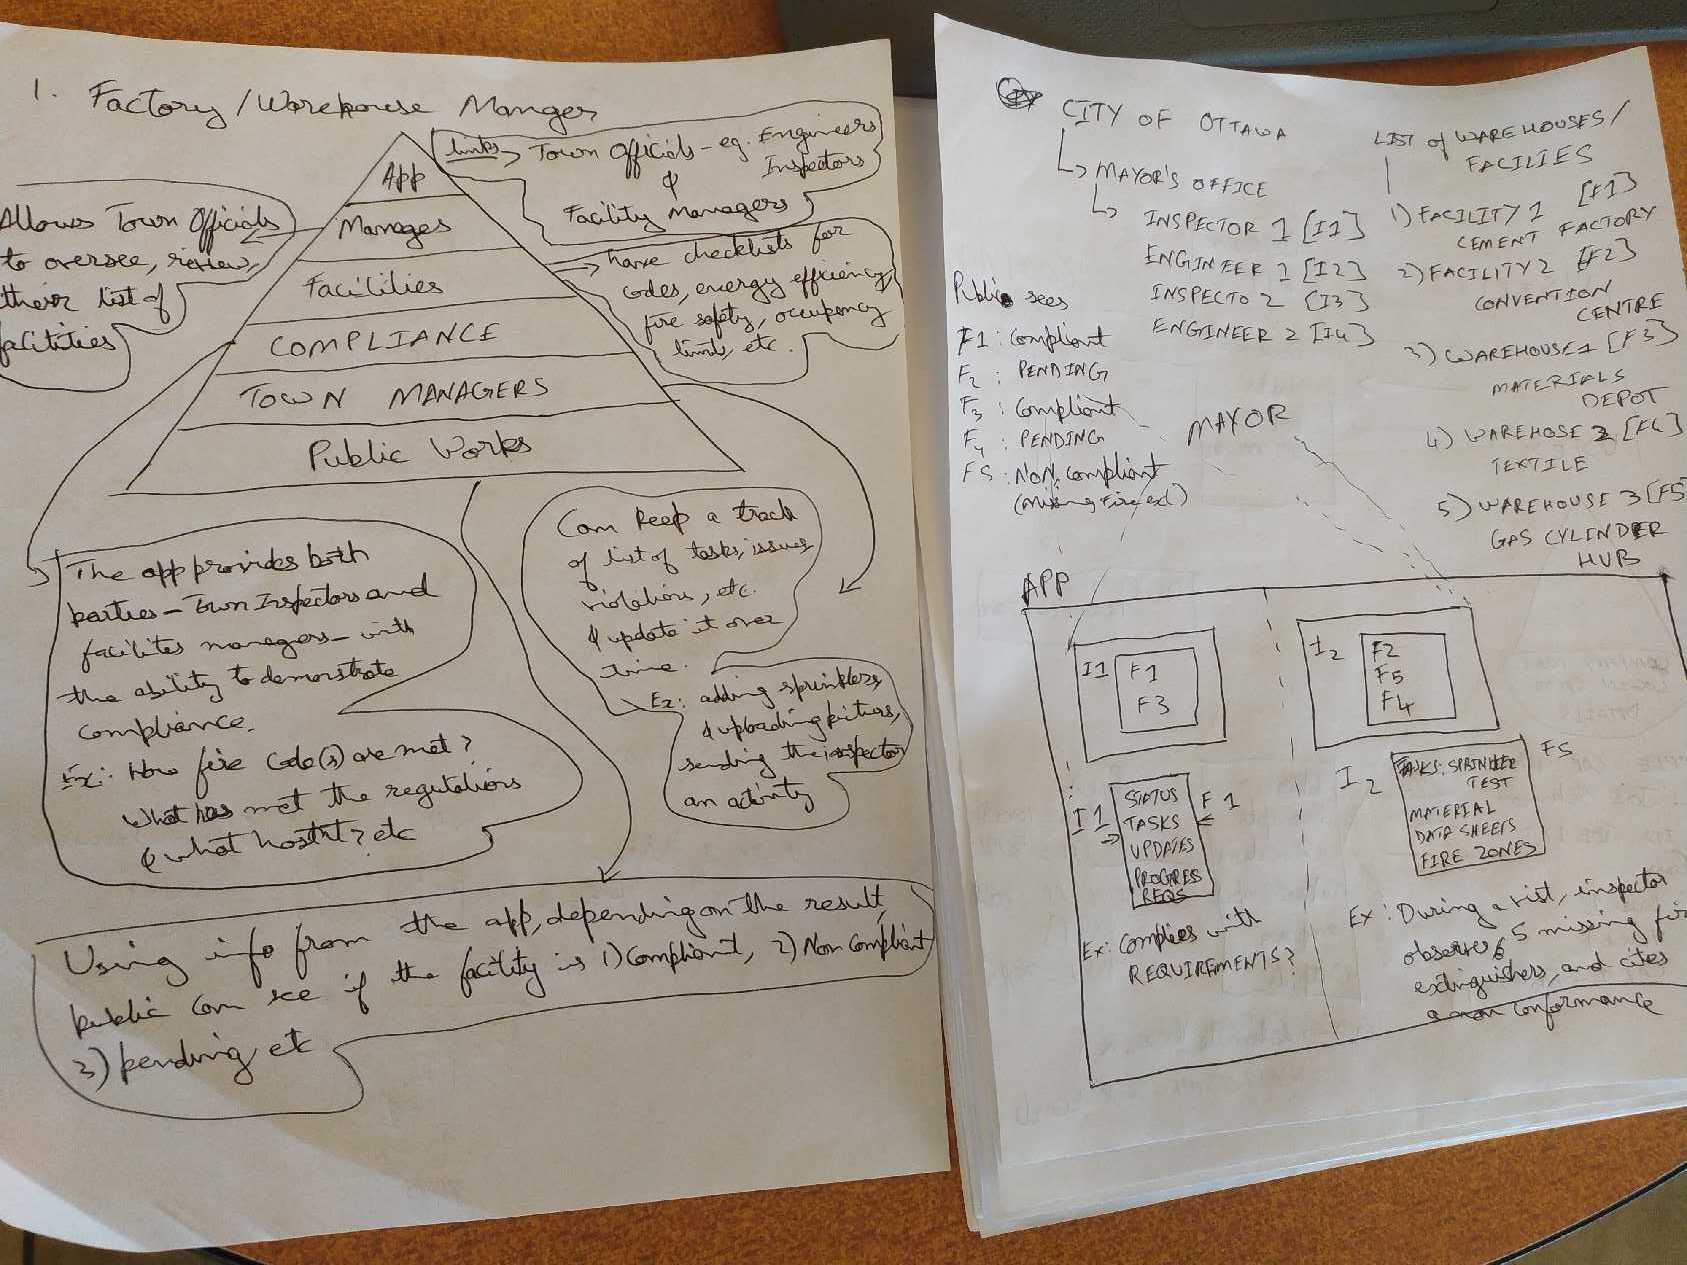 1. Factory/Warehouse Manger
App
Manages
Facilities
COMPLIANCE
TOWN MANAGERS
Public Works
links → Town Officials - eg. Engineers
Inspectors
&
Facility Managers
Allows Town Officials
to oversee, review,
their list of
facilities
have checklists for
codes, energy efficiency,
fire safety, occupency
limits, etc.
The app provides both
parties - Town Inspectors and
facilites managers - with
the ability to demonstrate
compliance.
Ex: How fire code(s) are met?
What has met the regulations
& what hasn't? etc
Can keep a track
of list of tasks, issues,
violations, etc.
& update it over
time.
Ex: adding sprinklers,
& uploading pictures,
sending the inspector
an activity
Using info from the app, depending on the result,
public can see if the facility is 1) Compliant, 2) Non Compliant
3) pending, etc
CITY OF OTTAWA
↳ MAYOR'S OFFICE
↳ INSPECTOR 1 [I1]
ENGINEER 1 [I2]
INSPECTO 2 [I3]
ENGINEER 2 [I4]
LIST of WAREHOUSES/
FACILIES
1) FACILITY 1 [F1]
CEMENT FACTORY
2) FACILITY 2 [F2]
CONVENTION
CENTRE
3) WAREHOUSE 1 [F3]
MATERIALS
DEPOT
4) WAREHOSE 2 [F4]
TEXTILE
5) WAREHOUSE 3 [F5]
GAS CYLINDER
HUB
Public sees
F1: Compliant
F2 PENDING
F3: Compliant
F4: PENDING
F5: NON Compliant
MAYOR
APP
I1
F1
F3
I2
F2
F5
F4
I1
STATUS
TASKS
UPDATES
PROGRESS
REQS
F1
Ex: Complies with
REQUIREMENTS?
I2
TASKS: SPRINKLER
TEST
MATERIAL
DATA SHEETS
FIRE ZONES
F5
Ex: During a visit, inspector
observes 5 missing fire
extinguishers, and cites
a non conformance